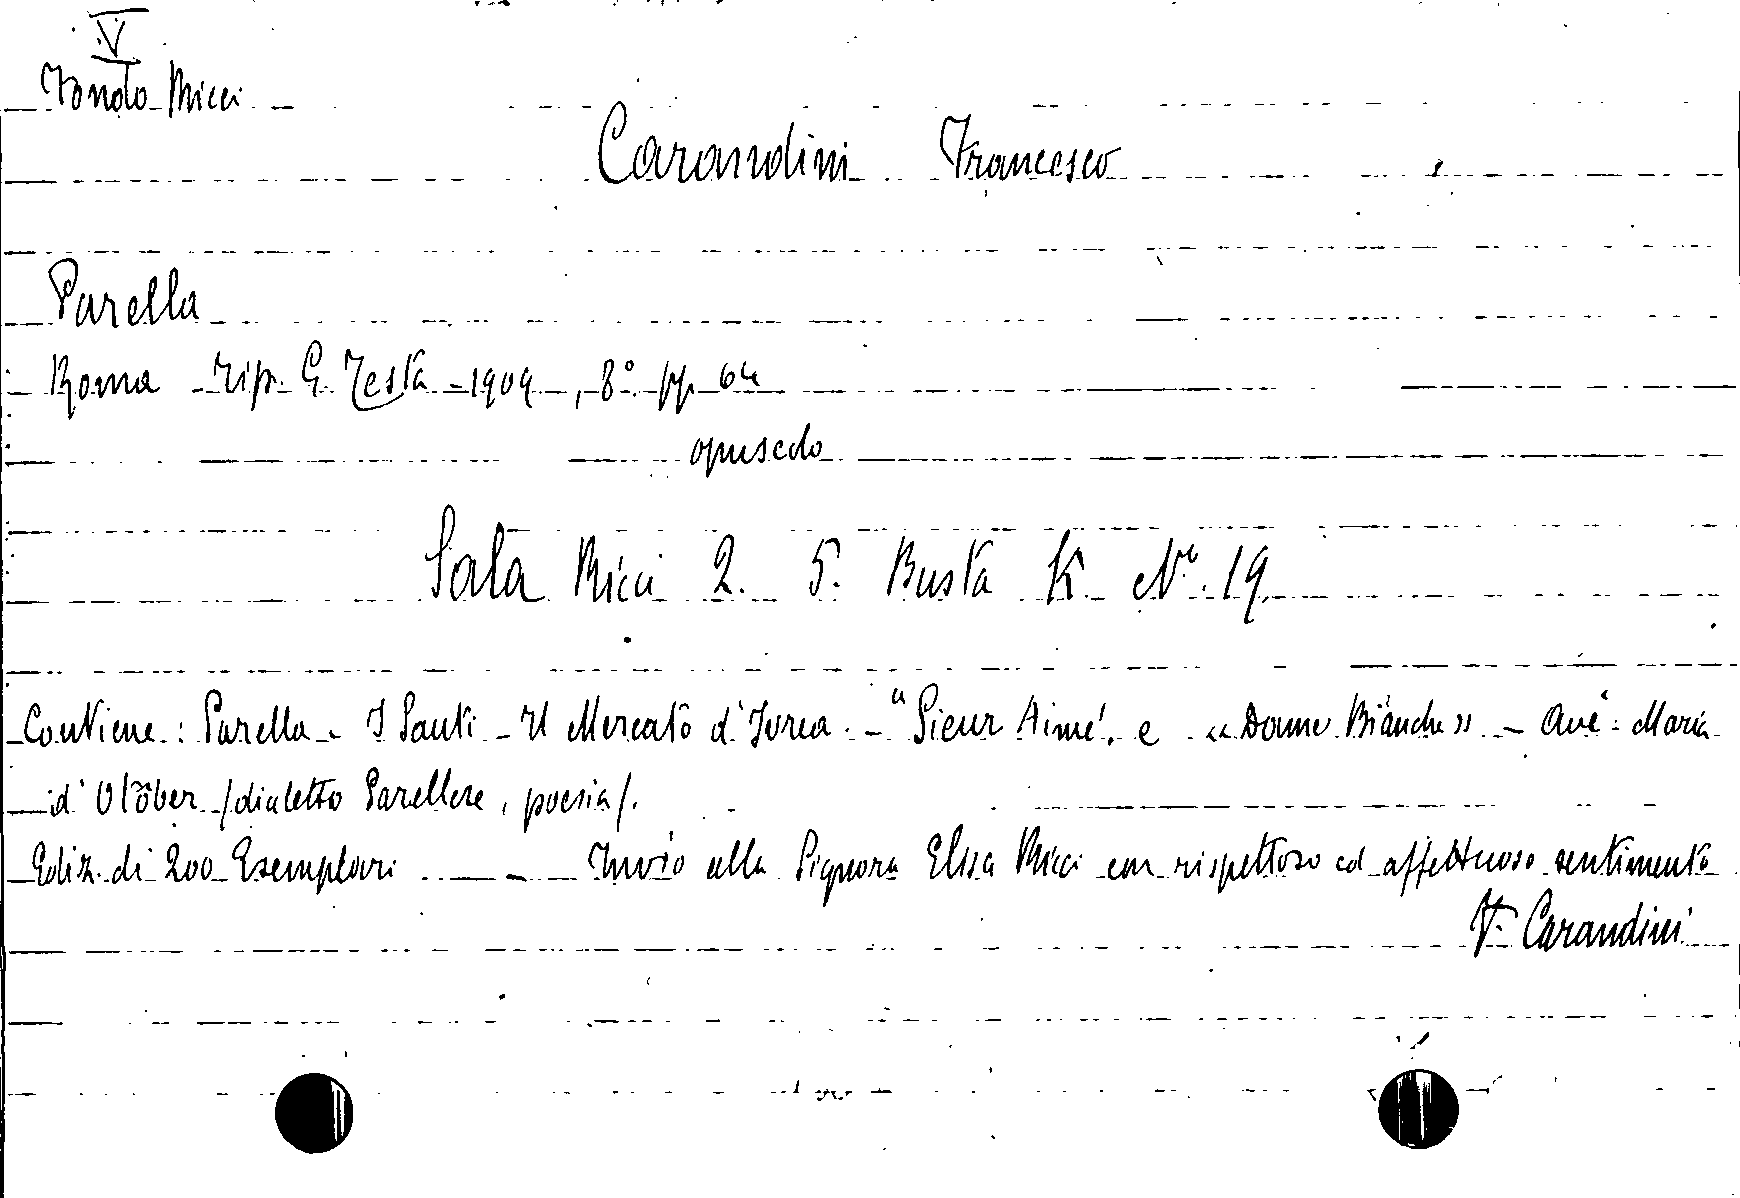 V
Fondo Ricci
Carandini Francesco
Parella
Roma Tip. G. Testa - 1909, 8° pp 64
opuscolo
Sala Ricci 2. 5. Busta K N° 19
Contiene: Parella - I Santi - Il Mercato d'Ivrea - "Sieur Aimé" e «Donne Bianche» - Avé Maria
d' Otober /dialetto Parellese, poesia/.
Ediz. di 200 Esemplari - Invio alla Signora Elisa Ricci con rispettoso ed affettuoso sentimento
F. Carandini